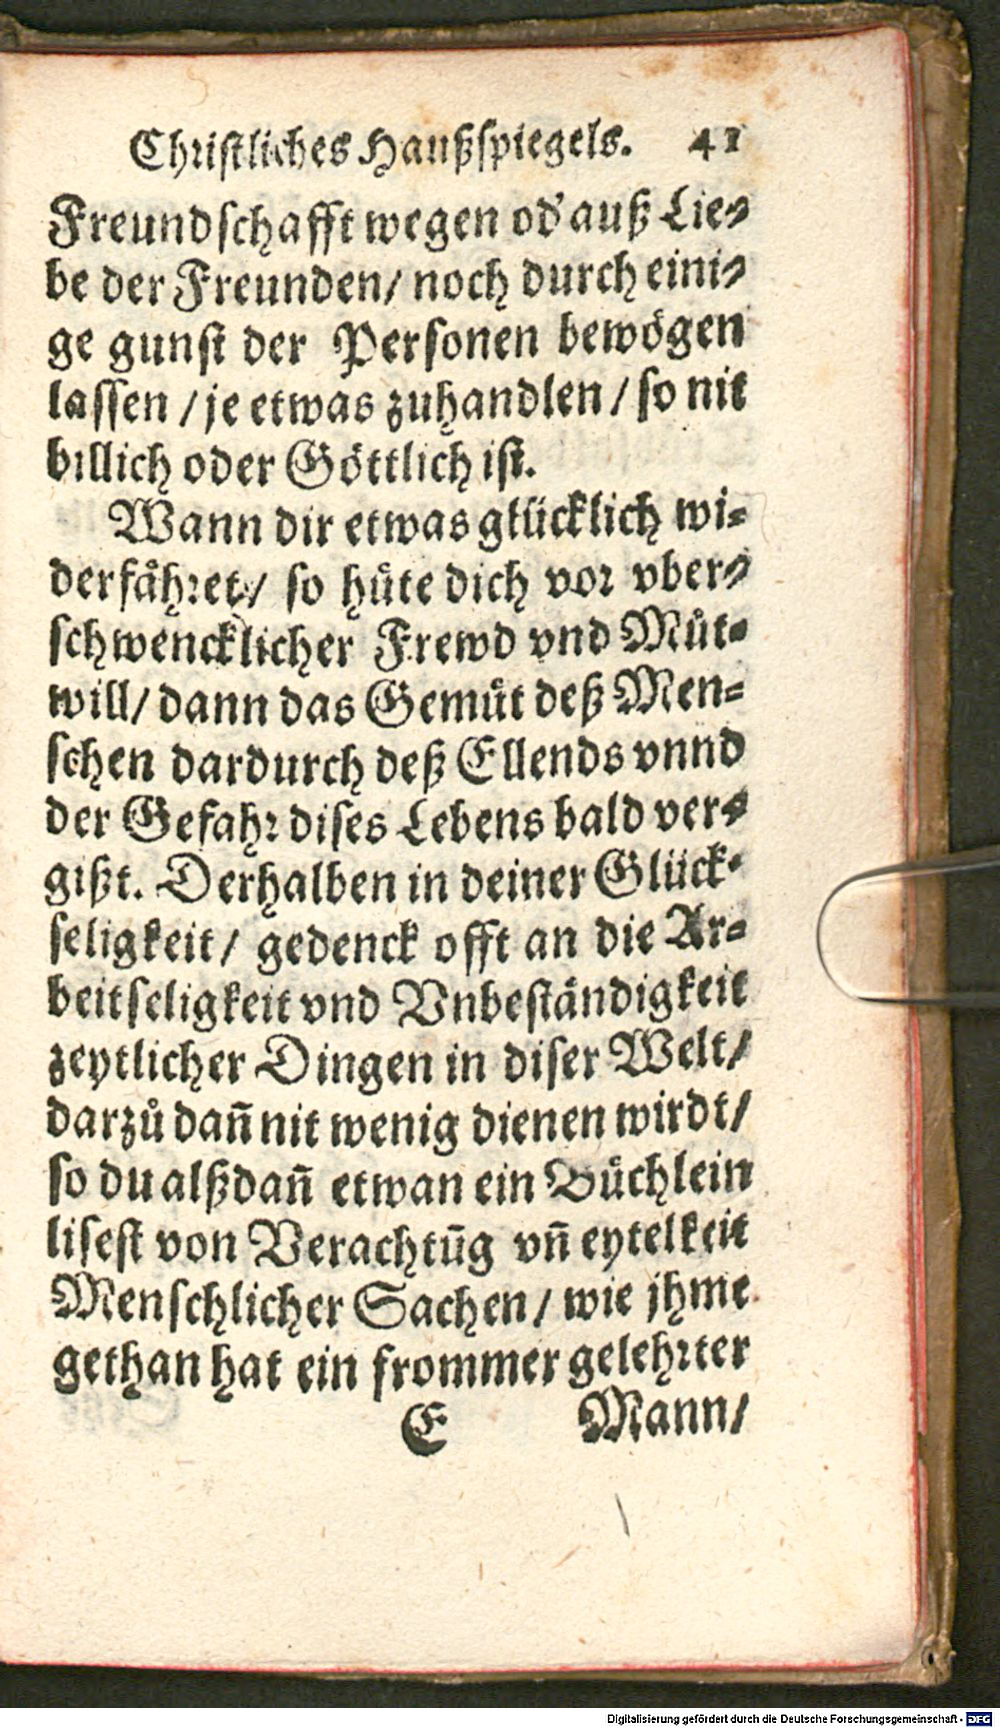 Christliches Haußspiegels. 41
Freundschafft wegen od' auß Lie⸗
be der Freunden/ noch durch eini⸗
ge gunst der Personen bewögen
lassen / je etwas zuhandlen / so nit
billich oder Göttlich ist.
Wann dir etwas glücklich wi⸗
derfåhret/ so hüte dich vor vber⸗
schwencklicher Frewd vnd Můt⸗
will/ dann das Gemüt deß Men⸗
schen dardurch deß Ellends vnnd
der Gefahr dises Lebens bald ver⸗
gißt. Derhalben in deiner Glück⸗
seligkeit/ gedenck offt an die Ar⸗
beitseligkeit vnd Vnbeständigkeit
zeytlicher Dingen in diser Welt/
darzů dañ nit wenig dienen wirdt/
so du alßdañ etwan ein Büchlein
lisest von Verachtūg vñ eytelkeit
Menschlicher Sachen / wie jhme
gethan hat ein frommer gelehrter
E Mann/
Digitalisierung gefördert durch die Deutsche Forschungsgemeinschaft - DFG